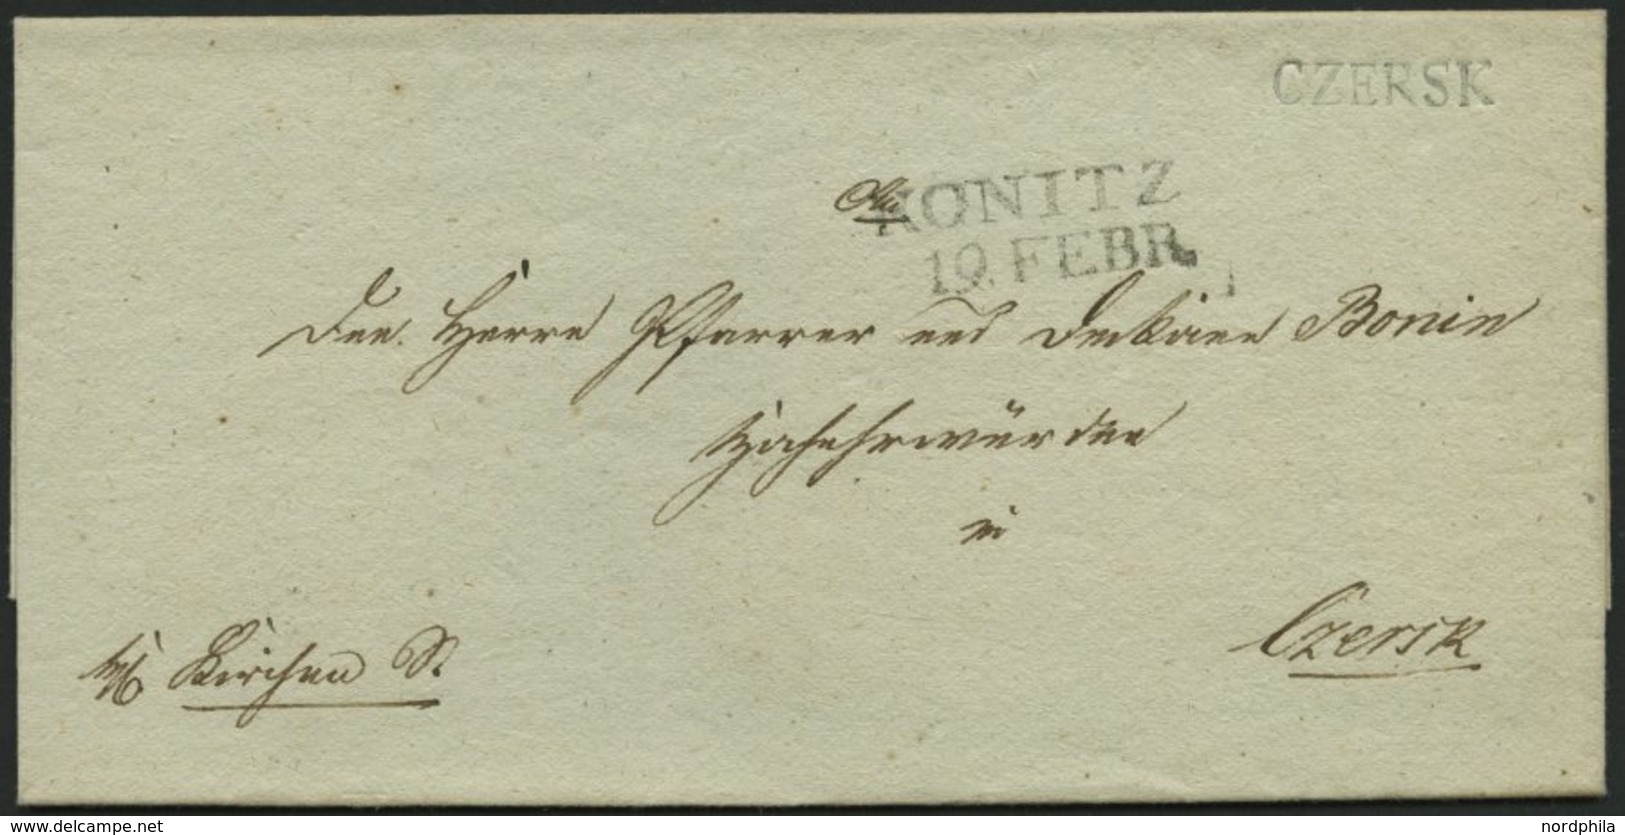 CZERSK
KONITZ
19. FEBR.
An
den Herrn Pfarrer und Deckann Bonin
Hochehrwürden
in
Czersk
Kirchen S.
www.delcampe.net
nordphila